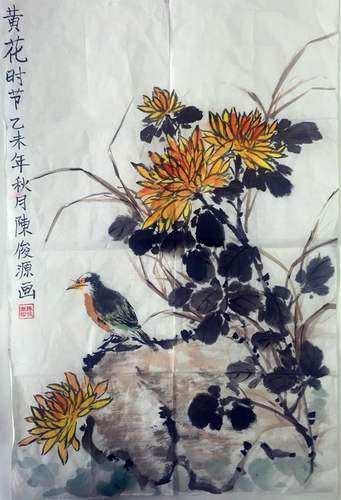 黄花时节乙未年秋月陳俊源画